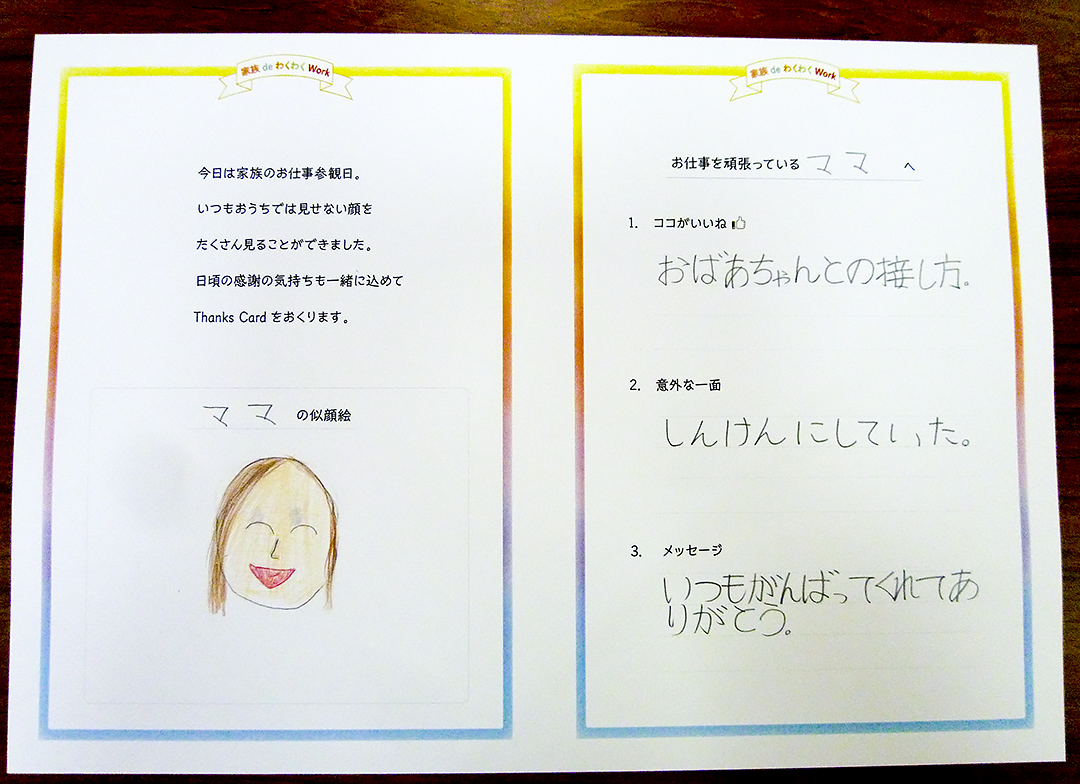 家族 de わくわく Work
今日は家族のお仕事参観日。
いつもおうちでは見せない顔を
たくさん見ることができました。
日頃の感謝の気持ちも一緒に込めて
Thanks Card をおくります。
ママ の似顔絵
家族 de わくわく Work
お仕事を頑張っている ママ へ
1. ココがいいね
おばあちゃんとの接し方。
2. 意外な一面
しんけんにしていた。
3. メッセージ
いつもがんばってくれてあ
りがとう。